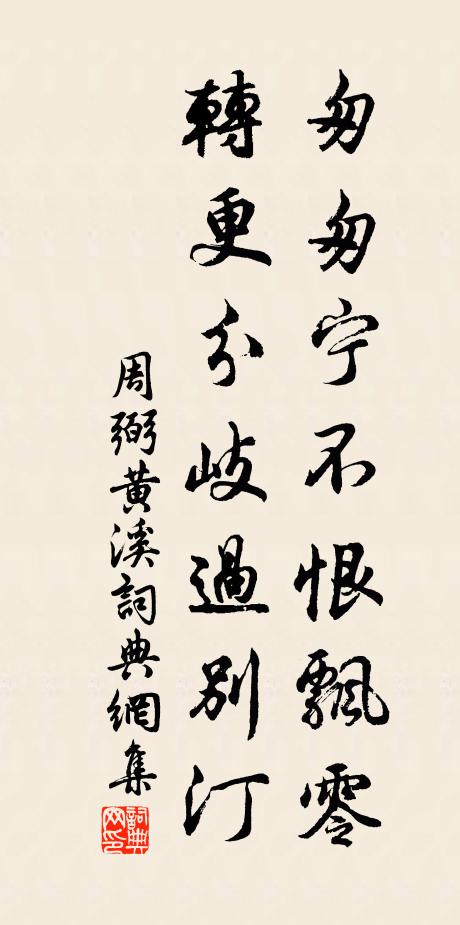 匆匆宁不恨飄零
轉更分岐過別汀
周弼黄溪詞典網集
詞典网印